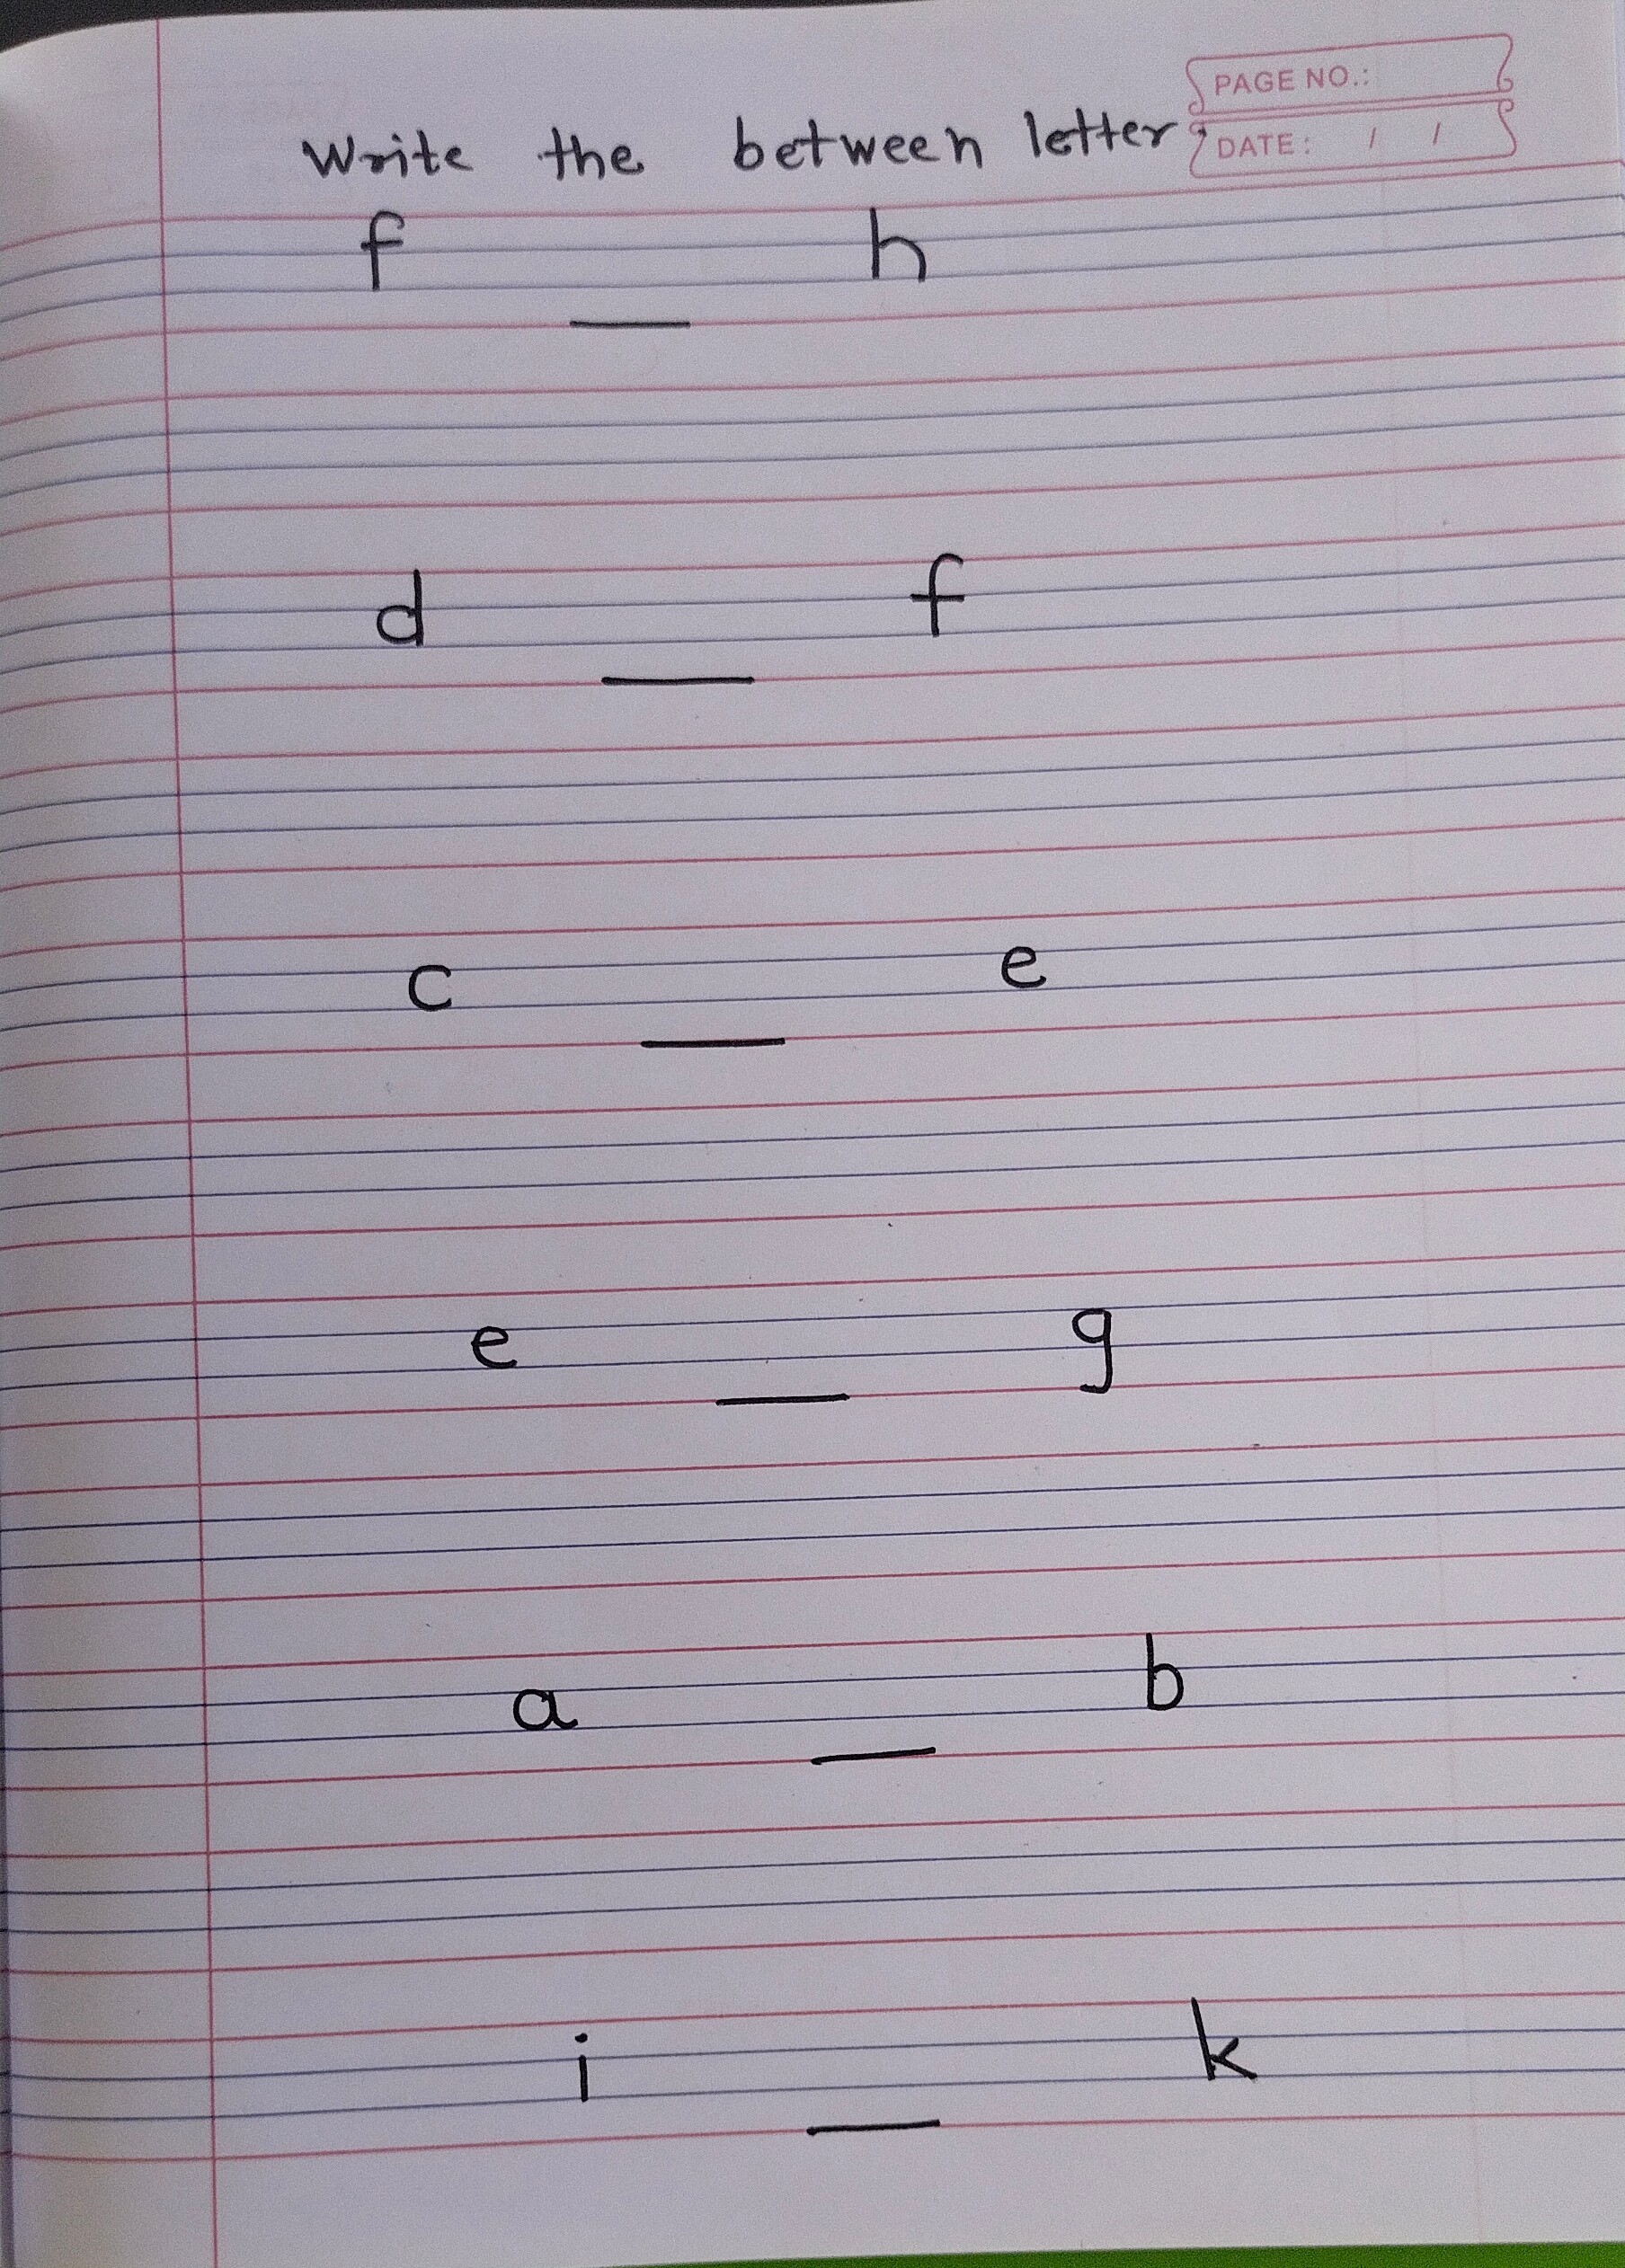 PAGE NO.:
DATE: / /
Write the between letter:
f __ h
d __ f
c __ e
e __ g
a __ b
i __ k